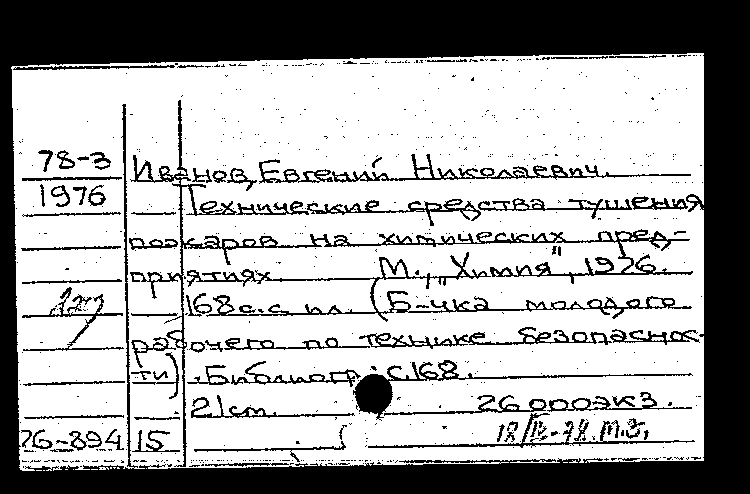 78-3 Иванов, Евгений Николаевич.
1976 Технические средства тушения
пожаров на химических пред-
приятиях. М., „Химия", 1976.
168 с.с ил. (Б-чка молодого
рабочего по технике безопаснос-
ти). Библиогр.: с.168.
21 cm. 26 000 экз.
76-894 15